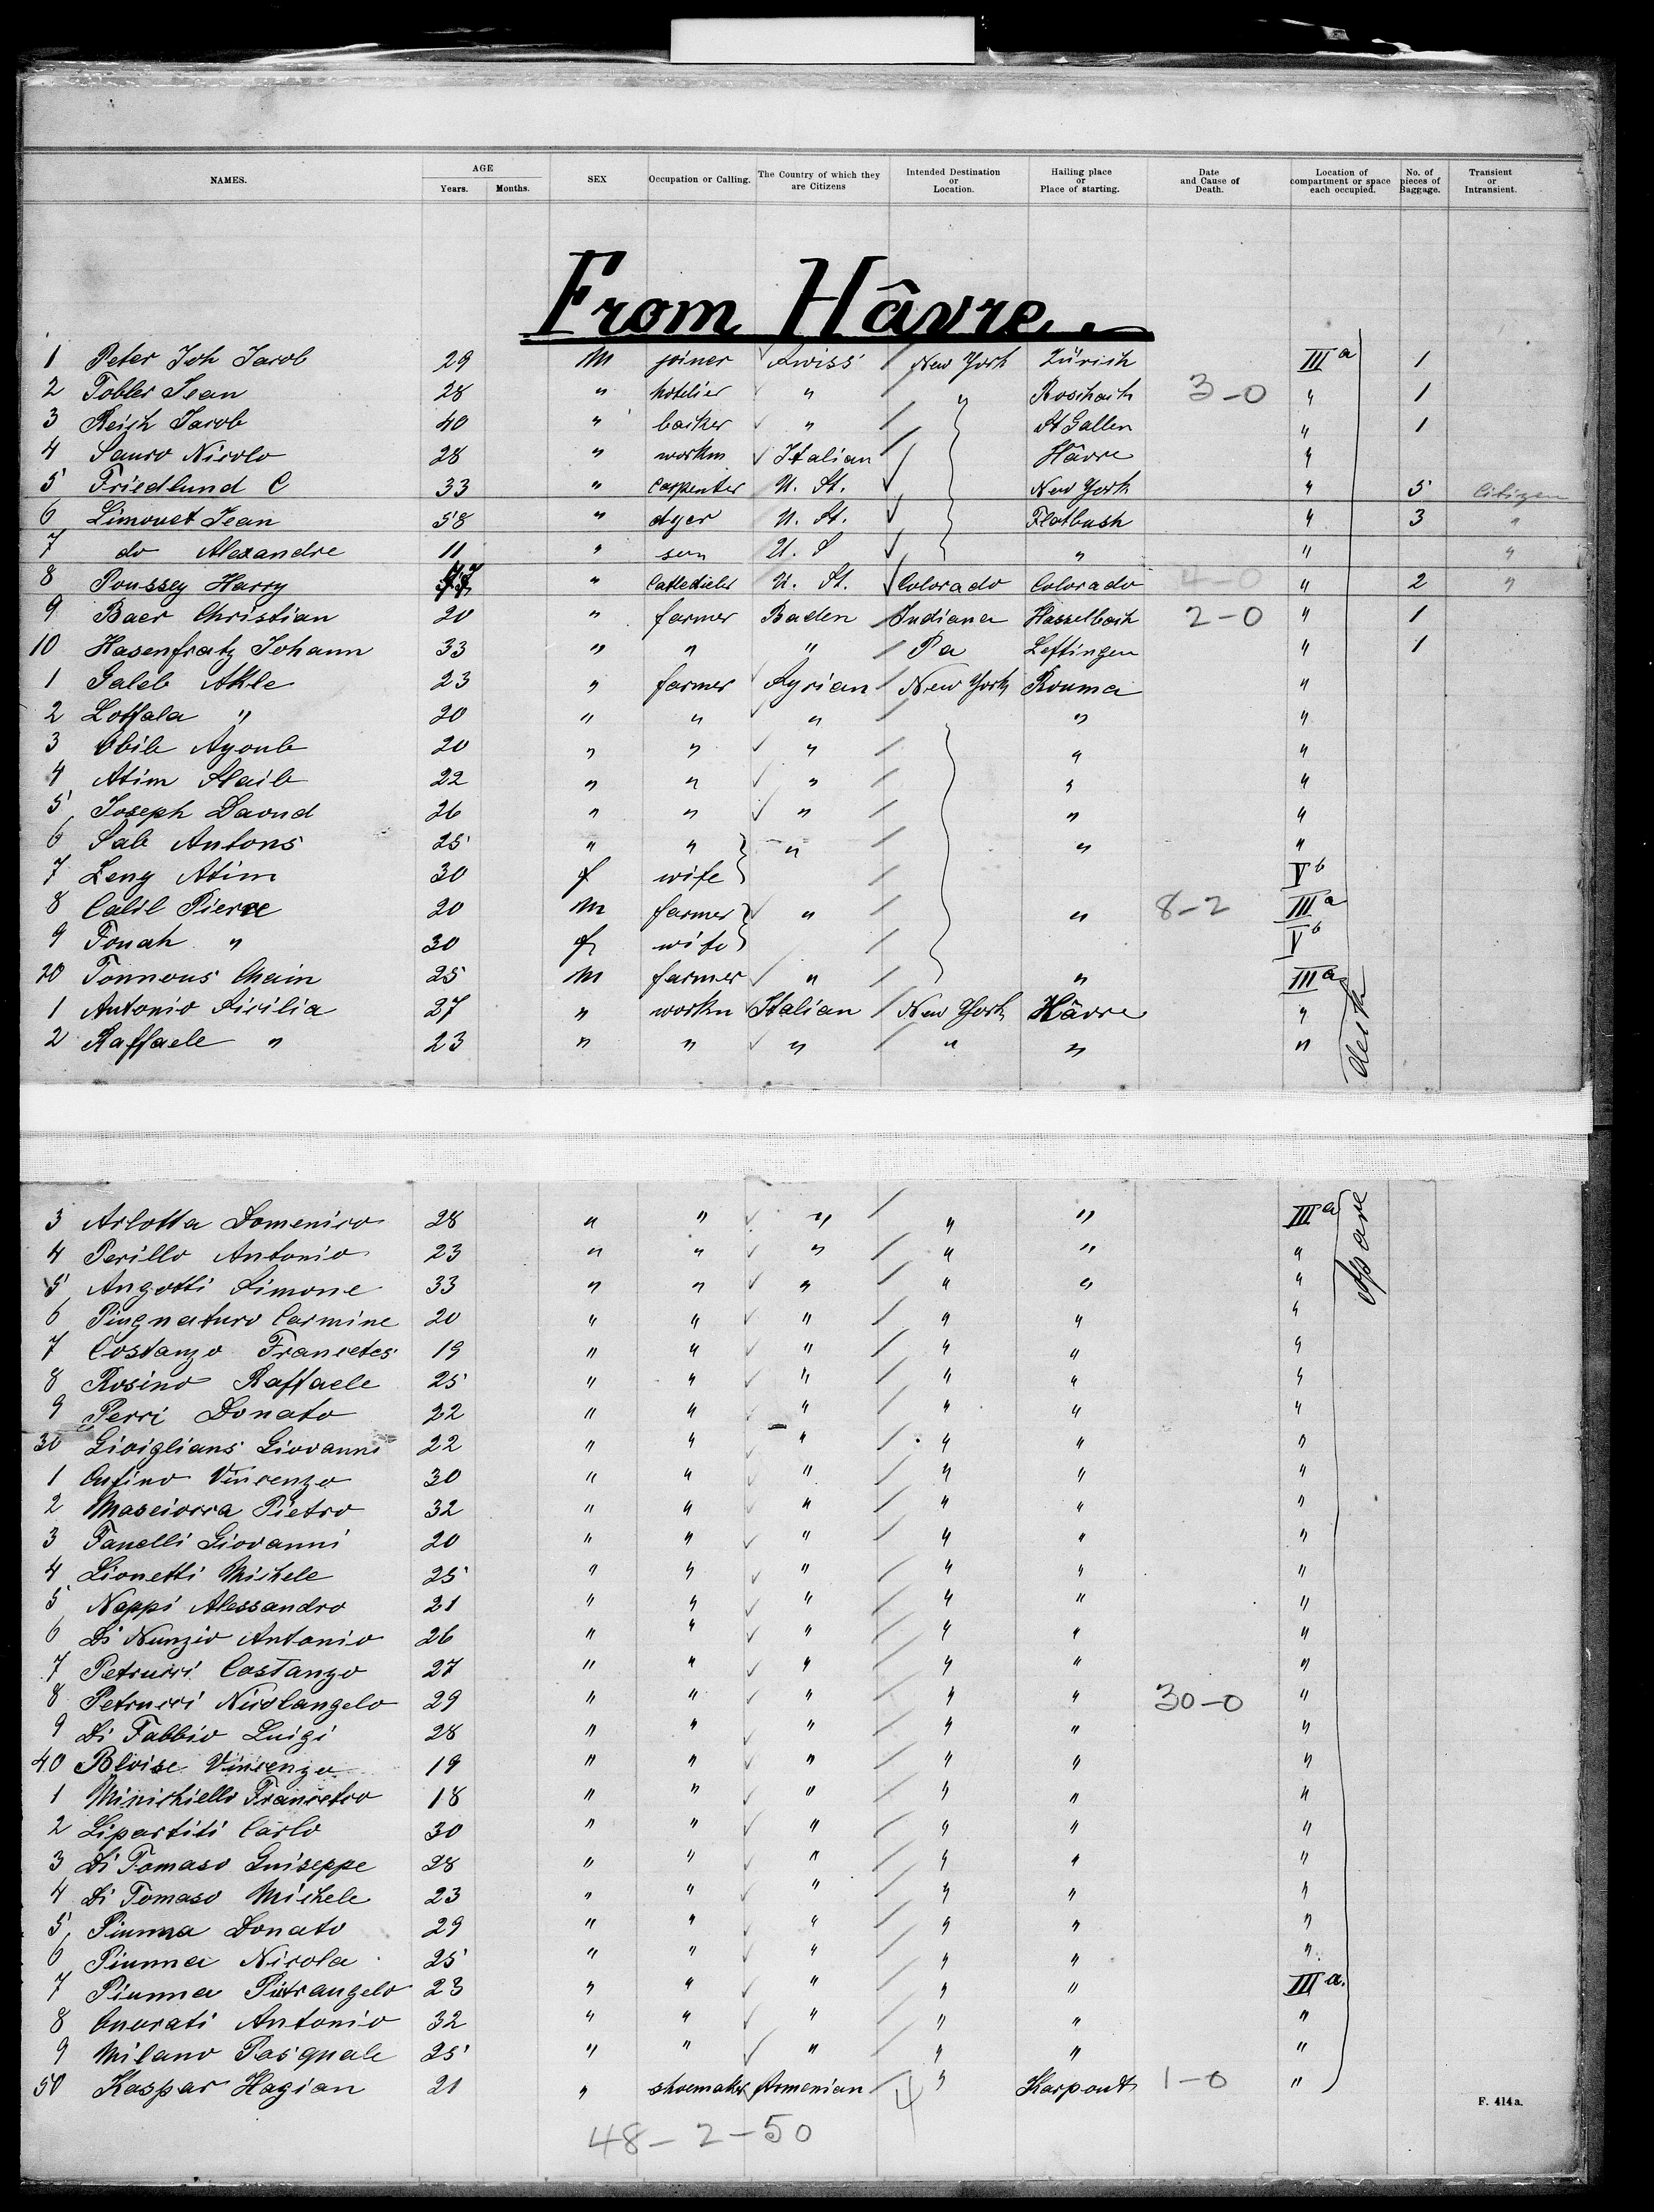 NAMES. AGE Years. Months. SEX Occupation or Calling. The Country of which they are Citizens Intended Destination or Location. Hailing place or Place of starting. Date and Cause of Death. Location of compartment or space each occupied. No. of pieces of Baggage. Transient or Intransient.
From Hâvre.
1 Peter Joh Jacob 29 M joiner Swiss New York Zürich IIIa 1
2 Tobler Jean 28 " hotelier " " Roschach 3-0 " 1
3 Reich Jacob 40 " " St Gallen " 1
4 Sauro Nicolo 28 " workm Italian Hâvre "
5 Friedlund C 33 " Carpenter U. St. New York " 5 Citizen
6 Limouet Jean 58 " dyer U. St. Flatbush " 3 "
7 do Alexandre 11 " son U. S " " "
8 Poussey Harry " U. St. Colorado Colorado 4-0 " 2 "
9 Baer Christian 20 " farmer Baden Indiana Hasselbach 2-0 " 1
10 Hasenfratz Johann 33 " " " Pa Leftingen " 1
1 Galeb Akle 23 " farmer Syrian New York Rouma "
2 Lotfala " 20 " " " " "
3 Abib Ayoub 20 " " " " "
4 Atim Slaib 22 " " " " "
5 Joseph Daoud 26 " " " " "
6 Sab Antons 25 " " " " "
7 Zeny Atim 30 f wife Vb
8 Calil Pierre 20 M farmer " " 8-2 IIIa
9 Fonah " 30 f wife Vb
20 Tonnous Chain 25 M farmer " " IIIa
1 Antonio Sicilia 27 " workm Italian New York Hâvre "
2 Raffaele " 23 " " " " " "
deck
3 Arlotta Domenico 28 " " " " " IIIa
4 Perillo Antonio 23 " " " " " "
5 Angotti Simone 33 " " " " " "
6 Pingnaturo Carmine 20 " " " " " "
7 Costanzo Francetes 19 " " " " " "
8 Rosino Raffaele 25 " " " " " "
9 Perri Donato 22 " " " " " "
30 Liviglians Giovanni 22 " " " " " "
1 Vincenzo 30 " " " " " "
2 Masciorra Pietro 32 " " " " " "
3 Fanelli Giovanni 20 " " " " " "
4 Lionetti Michele 25 " " " " " "
5 Nappi Alessandro 21 " " " " " "
6 Di Nunzio Antonio 26 " " " " " "
7 Petrucci Costanzo 27 " " " " " "
8 Petrucci Nicolangelo 29 " " " " " 30-0 "
9 Di Fabbio Luigi 28 " " " " " "
40 Bloise Vincenzo 19 " " " " " "
1 Minichiello Francesco 18 " " " " " "
2 Lipartiti Carlo 30 " " " " " "
3 Di Tomaso Guiseppe 28 " " " " " "
4 Di Tomaso Michele 23 " " " " " "
5 Piunna Donato 29 " " " " " "
6 Piunna Nicola 25 " " " " " "
7 Piunna Pietrangelo 23 " " " " " IIIa.
8 Onorati Antonio 32 " " " " " "
9 Milano Pasquale 25 " " " " " "
50 Kaspar Hagian 21 " shoemaker Armenian " Karpout 1-0 "
F. 414a.
48-2-50